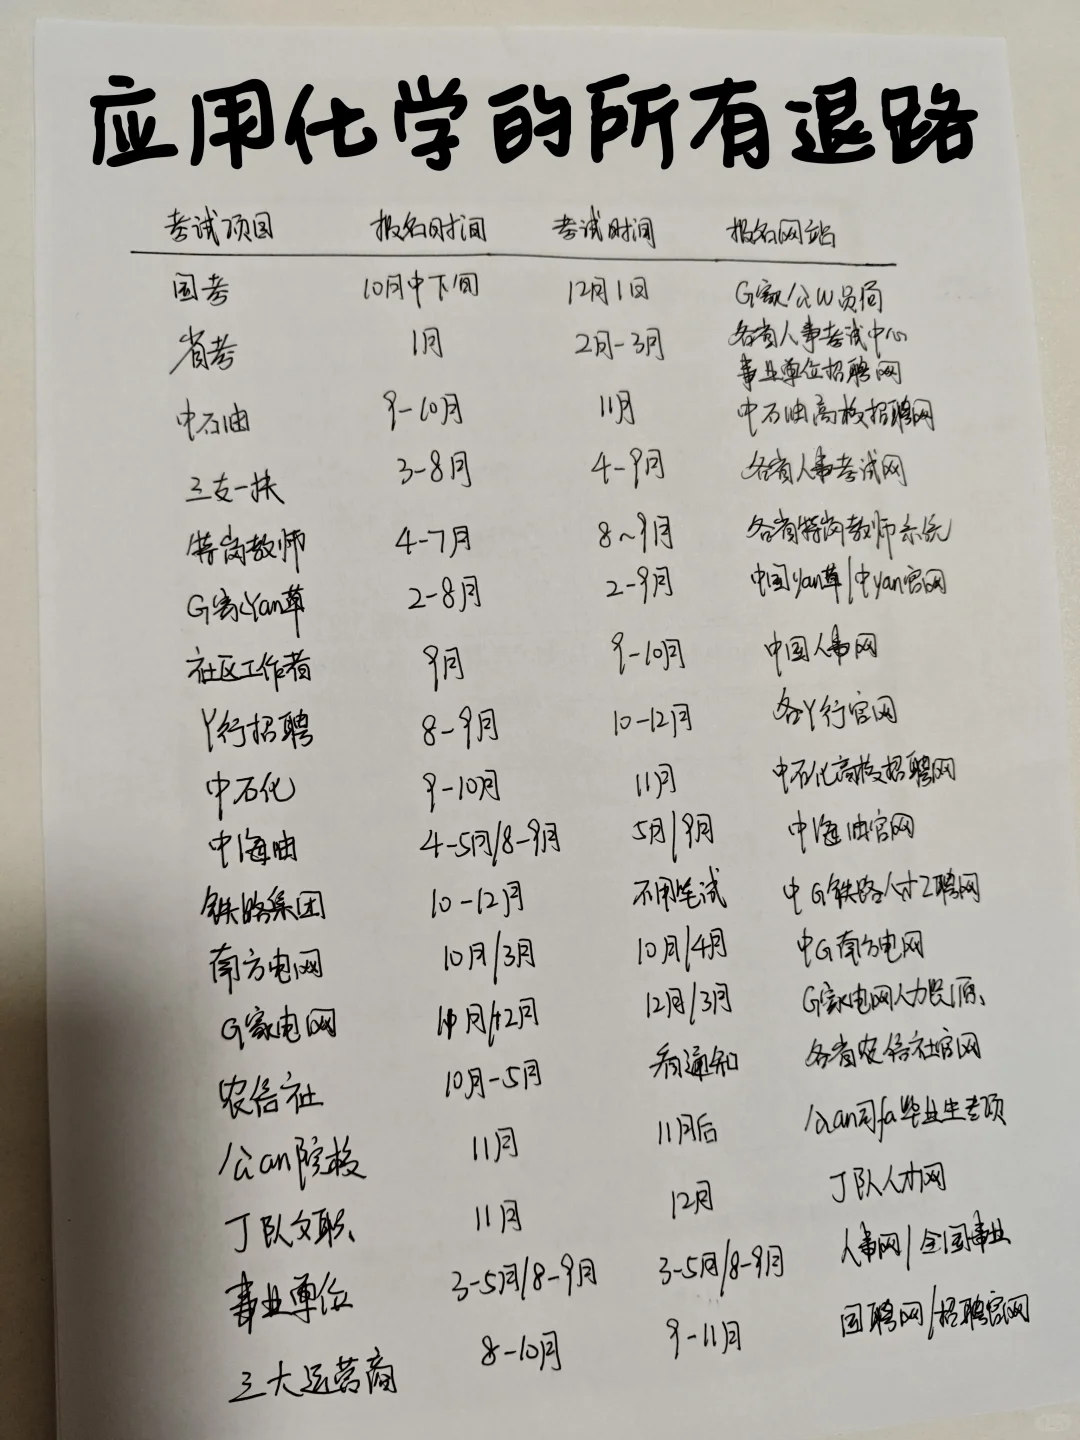 应用化学的所有退路
考试项目 报名时间 考试时间 报名网站
国考 10月中下旬 12月1日 G家公W员局
省考 1月 2月-3月 各省人事考试中心
事业单位招聘网
中石油 9-10月 11月 中石油高校招聘网
三支一扶 3-8月 4-9月 各省人事考试网
特岗教师 4-7月 8~9月 各省特岗教师系统
G家Yan草 2-8月 2-9月 中国yan草/中yan官网
社区工作者 9月 9-10月 中国人事网
Y行招聘 8-9月 10-12月 各Y行官网
中石化 9-10月 11月 中石化高校招聘网
中海油 4-5月/8-9月 5月/9月 中海油官网
铁路集团 10-12月 不用笔试 中G铁路人才Z聘网
南方电网 10月/3月 10月/4月 中G南方电网
G家电网 月/2月 12月/3月 G家电网人力资源
农信社 10月-5月 看通知 各省农信社官网
公an院校 11月 11月后 公an司fa毕业生专项
J队文职 11月 12月 J队人才网
事业单位 3-5月/8-9月 3-5月/8-9月 人事网/全国事业
三大运营商 8-10月 9-11月 国聘网/招聘官网